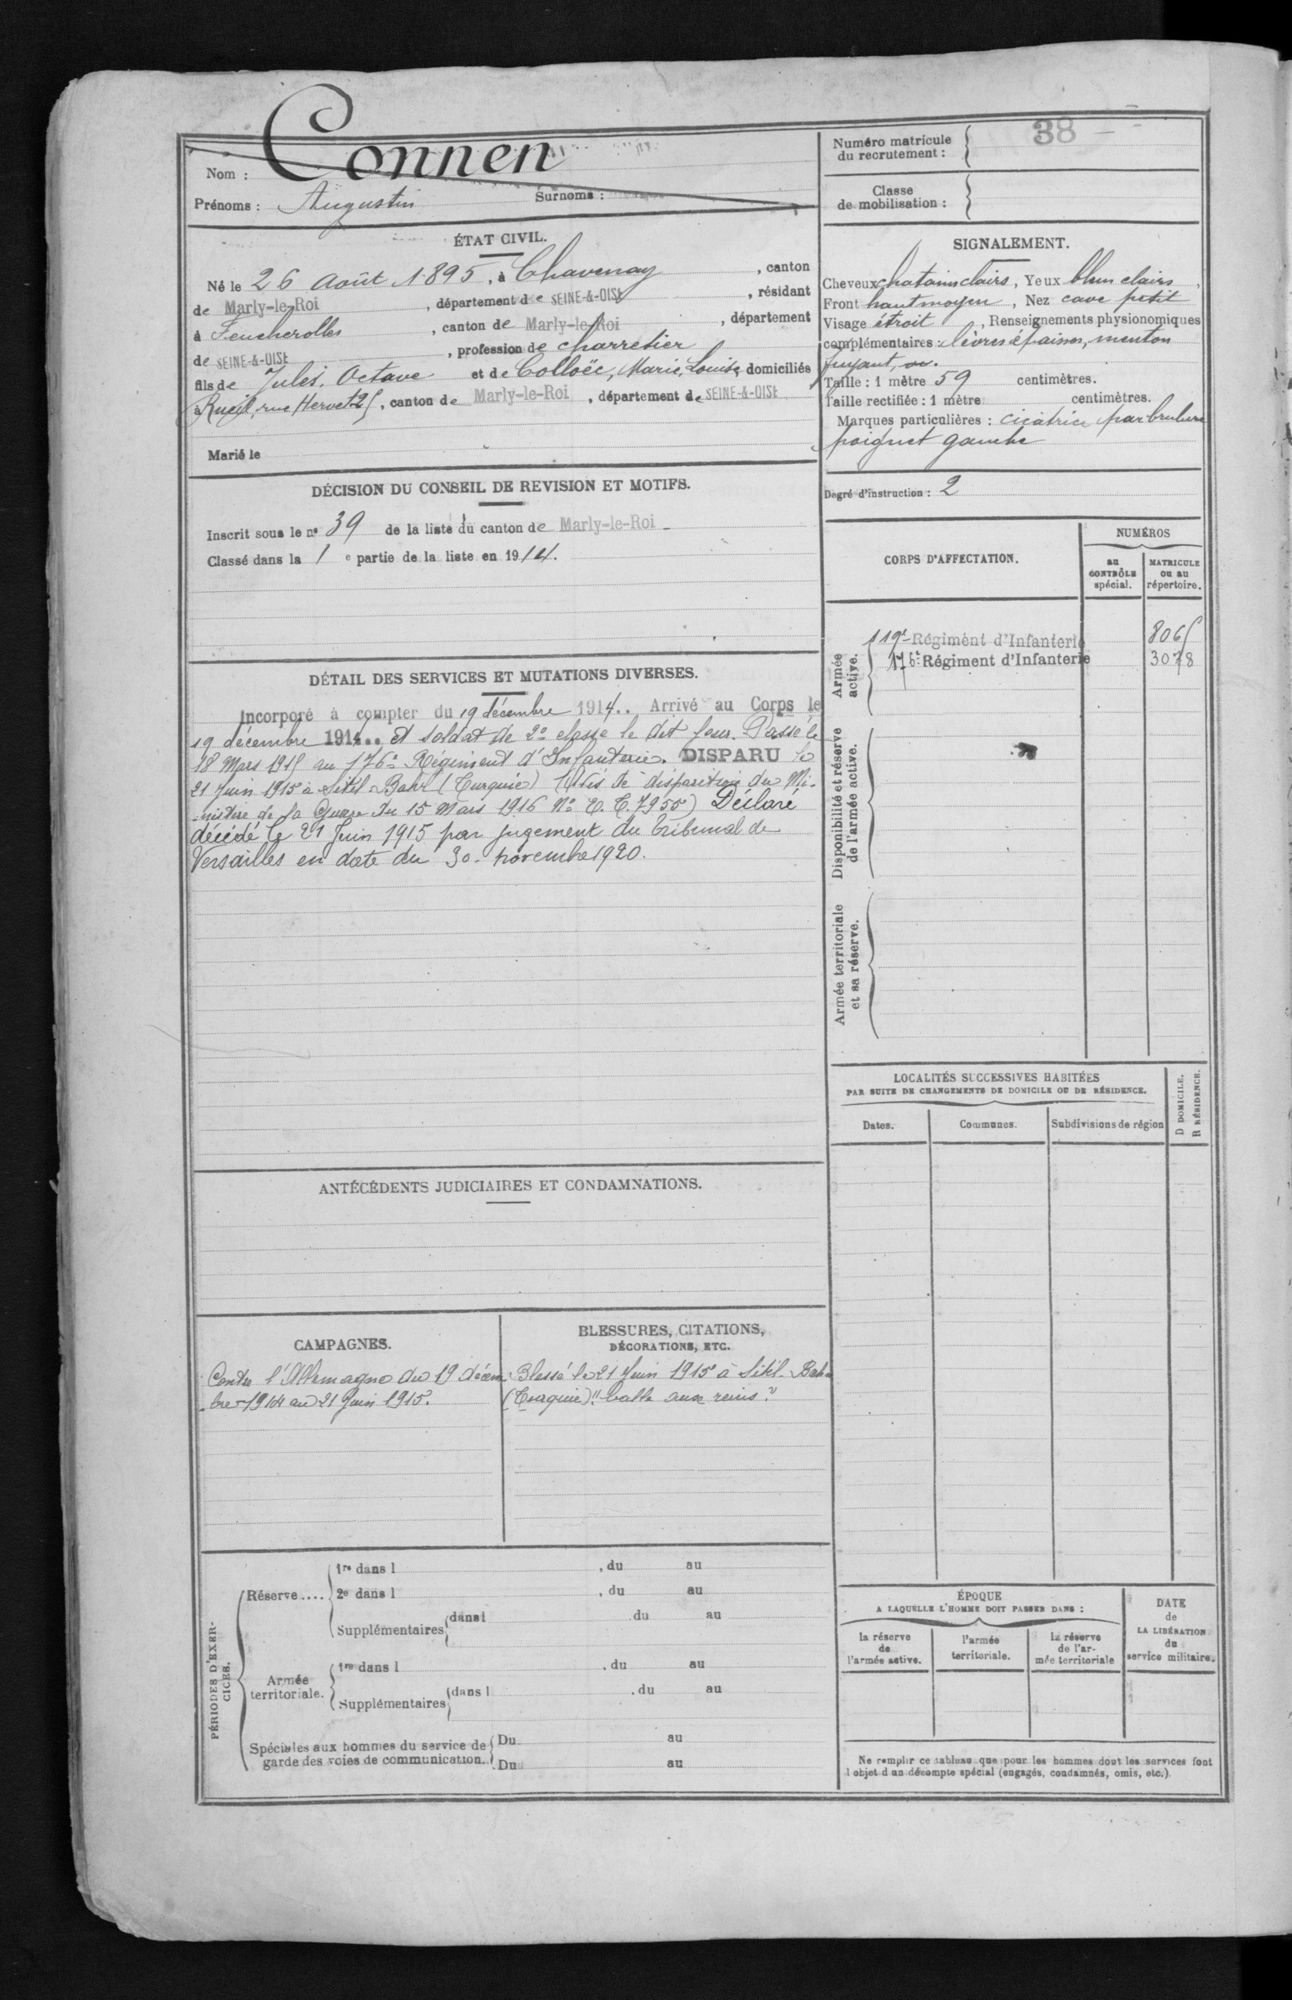 Nom : Connen
Prénoms : Augustin Surnoms :
ÉTAT CIVIL.
Né le 26 Août 1895, à Chavenay, canton
de Marly-le-Roi, département de SEINE-&-OISE, résidant
à Feucherolles, canton de Marly-le-Roi, département
de SEINE-&-OISE, profession de charretier
fils de Jules, Octave et de Colloëc, Marie, Louise, domiciliés
à Rueil, rue Hervet 25, canton de Marly-le-Roi, département de SEINE-&-OISE
Marié le
DÉCISION DU CONSEIL DE REVISION ET MOTIFS.
Inscrit sous le nº 39 de la liste du canton de Marly-le-Roi
Classé dans la 1e partie de la liste en 1914.
DÉTAIL DES SERVICES ET MUTATIONS DIVERSES.
Incorporé à compter du 19 décembre 1914.. Arrivé au Corps le
19 décembre 1914.. et soldat de 2e classe le dit jour. Passé le
18 Mars 1915 au 176e Régiment d'Infanterie. DISPARU le
21 Juin 1915 à Sitil-Bahr (Turquie) (Avis de disparition du Mi-
-nistère de la Guerre du 15 Mars 1916 Nº 7955) Déclaré
décédé le 21 Juin 1915 par jugement du Tribunal de
Versailles en date du 30 novembre 1920.
ANTÉCÉDENTS JUDICIAIRES ET CONDAMNATIONS.
CAMPAGNES.
Contre l'Allemagne du 19 décem
-bre 1914 au 21 Juin 1915.
BLESSURES, CITATIONS,
DÉCORATIONS, ETC.
Blessé le 21 Juin 1915 à Sitil-Bahr
(Turquie) "balle aux reins"
PÉRIODES D'EXER-
CICES.
Réserve....
1re dans l , du au
2e dans l , du au
Supplémentaires dans l du au
Armée
territoriale.
1re dans l , du au
Supplémentaires dans l , du au
Spéciales aux hommes du service de
garde des voies de communication.
Du au
Du au
Numéro matricule
du recrutement :
38
Classe
de mobilisation :
SIGNALEMENT.
Cheveux chatains clairs, Yeux bleus clairs,
Front haut moyen, Nez cave petit
Visage étroit, Renseignements physionomiques
complémentaires : lèvres épaisses, menton
fuyant,
Taille : 1 mètre 59 centimètres.
Taille rectifiée : 1 mètre centimètres.
Marques particulières : cicatrice par brulure
poignet gauche
Degré d'instruction : 2
CORPS D'AFFECTATION.
NUMÉROS
au
CONTRÔLE
spécial.
MATRICULE
ou au
répertoire.
Armée
active.
119e Régiment d'Infanterie 8065
176e Régiment d'Infanterie 3078
Disponibilité et réserve
de l'armée active.
Armée territoriale
et sa réserve.
LOCALITÉS SUCCESSIVES HABITÉES
PAR SUITE DE CHANGEMENTS DE DOMICILE OU DE RÉSIDENCE.
Dates.
Communes.
Subdivisions de région
D DOMICILE.
R RÉSIDENCE.
ÉPOQUE
A LAQUELLE L'HOMME DOIT PASSER DANS :
la réserve
de
l'armée active.
l'armée
territoriale.
la réserve
de l'ar-
mée territoriale
DATE
de
LA LIBÉRATION
du
service militaire.
Ne remplir ce tableau que pour les hommes dont les services font
l'objet d'un décompte spécial (engagés, condamnés, omis, etc.).